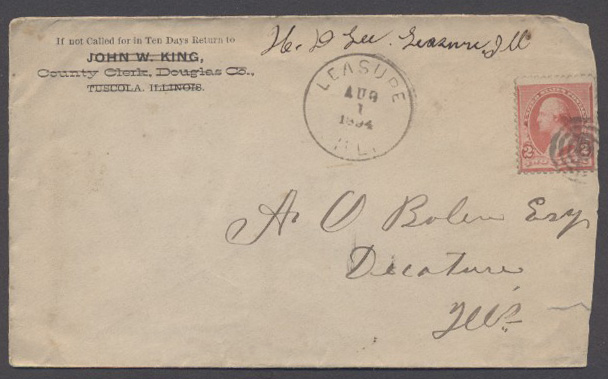 If not Called for in Ten Days Return to
JOHN W. KING,
County Clerk, Douglas Co.,
TUSCOLA, ILLINOIS.
H. D Gee. Leasure, Ill
LEASURE
AUG
1
1894
ILL.
2 2
A. O Bolen Esq
Decature
Ills